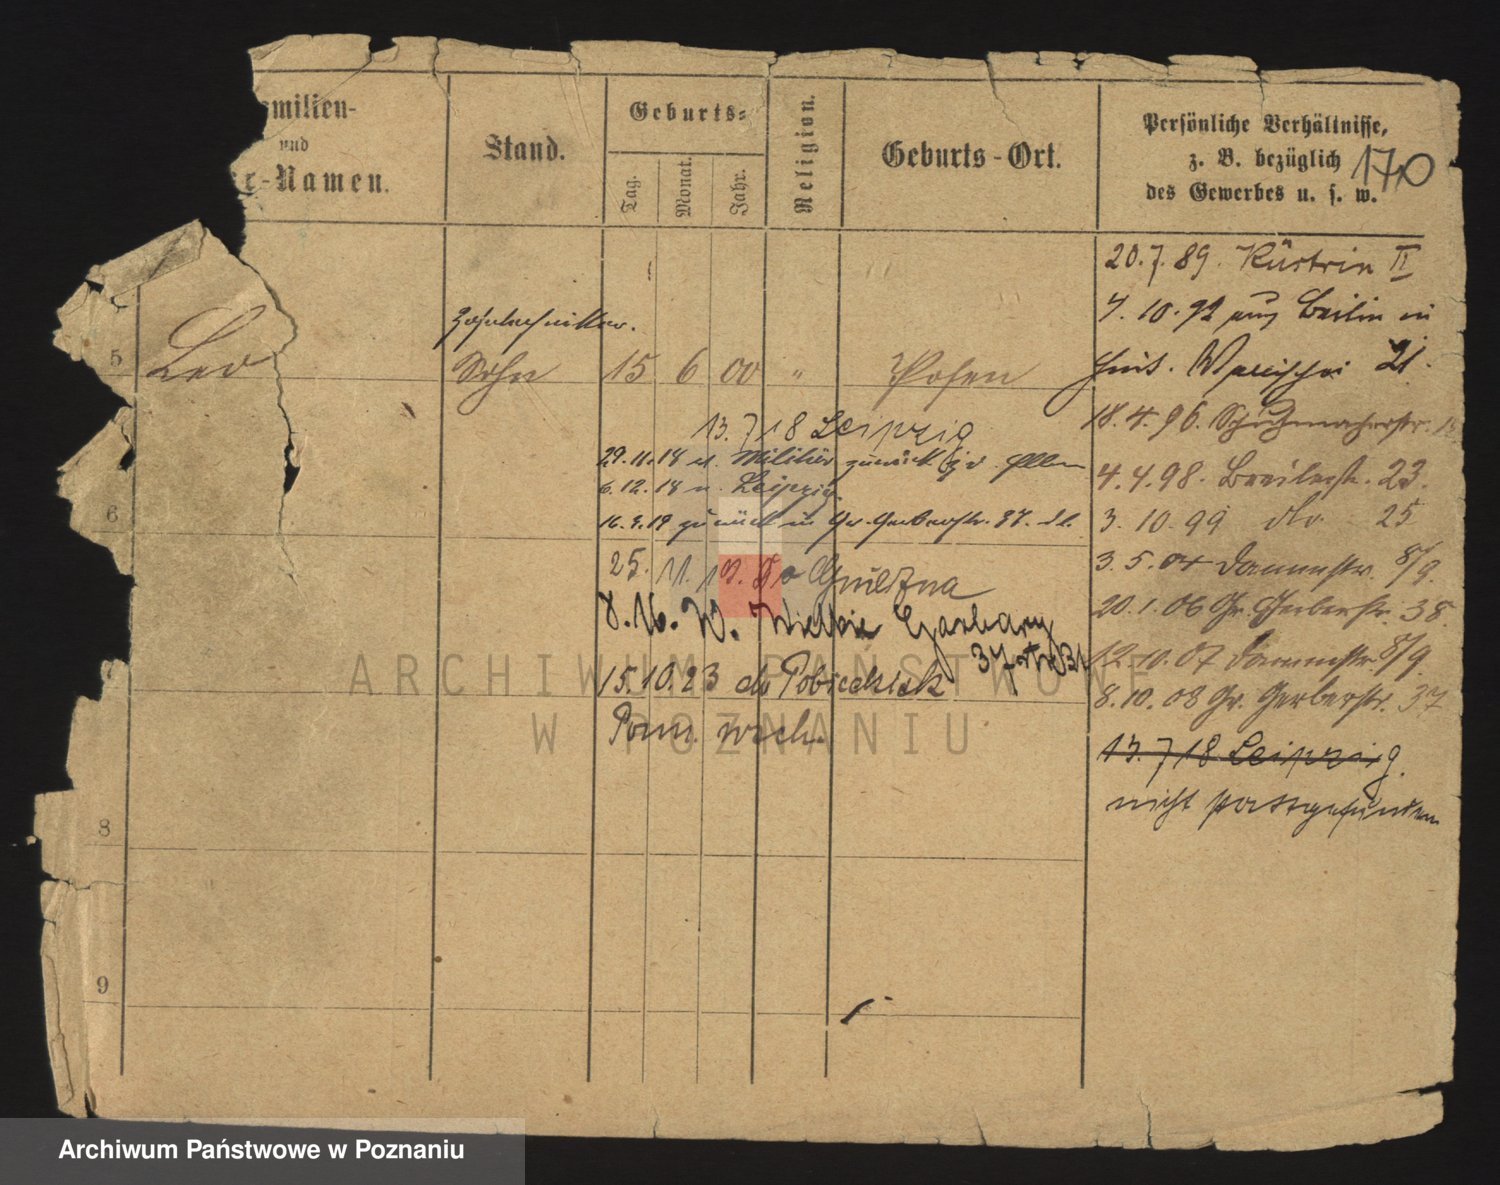 milien-
und
r-Namen.
Stand.
Geburts-
Tag.
Monat.
Jahr.
Religion.
Geburts-Ort.
Persönliche Verhältnisse,
z. B. bezüglich
des Gewerbes u. s. w.
170
20.7.89. Küstrin II
4.10.92 aus Berlin in
21.
18.4.96. Schuhmacherstr.
4.4.98. Breitestr. 23.
3.10.99 do 25
3.5.04 Dammstr. 8/9.
20.1.06 Gr. Gerberstr. 38.
12.10.07 Dammstr. 8/9
8.10.08 Gr. Gerberstr. 37
13.7.18 Leipzig.
nicht stattgefunden
Zahntechniker.
5 Leo Sohn 15 6 00 " Posen
13.7.18 Leipzig
29.11.18 v. Militär zurück
6.12.18 n. Leipzig.
16.3.19 zurück in Gr. Gerberstr. 37.
6
25.11.19. do Gniezna
8.16. W. Wielkie Garbary
37
15.10.23 do Pobiedzisk
Pow. wsch.
7
8
9
ARCHIWUM PAŃSTWOWE
W POZNANIU
Archiwum Państwowe w Poznaniu